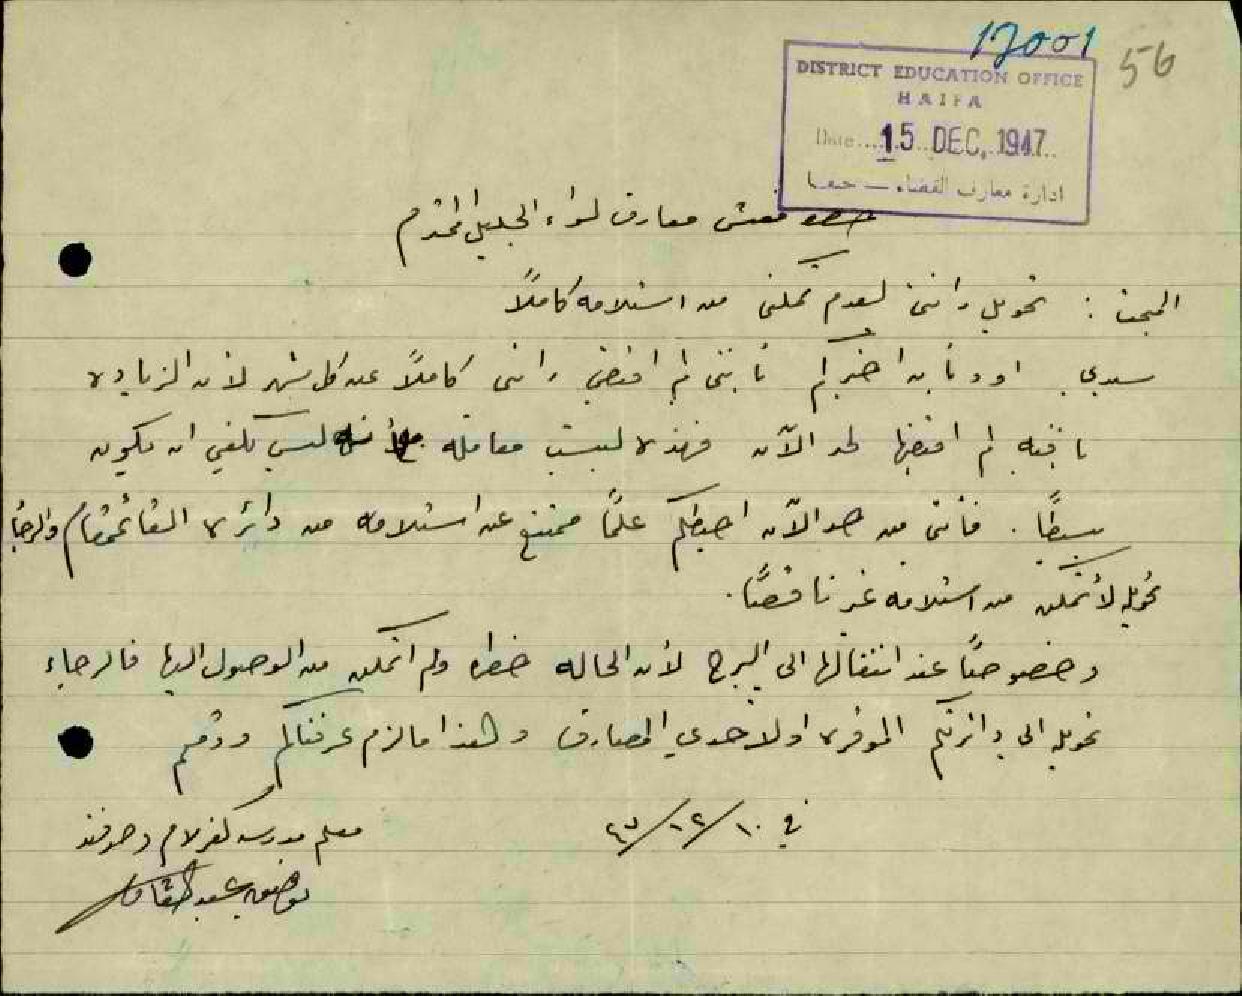 12001
56
DISTRICT EDUCATION OFFICE
HAIFA
Date 15 DEC, 1947
ادارة معارف القضاء — حيفا
مفتش معارف لواء الجليل المحترم
المبحث : تحويل راتبي لعدم تمكني من استلامه كاملاً
سيدي اود بان اخبركم بانني لم اقبض راتبي كاملاً عن كل شهر لأن الزياده
باقيه لم اقبضها لحد الآن فهذه ليست معامله ليس يكفي ان يكون
بسيطاً . فانني من حد الآن احيطكم علماً ممتنع عن استلامه من دائرة القائمقام والرجا
تحويله لأتمكن من استلامه غير ناقصاً .
وخصوصاً عند انتقالها الى البرج لأن الحاله خطره ولم اتمكن من الوصول اليها فالرجاء
تحويله الى دائرتكم الموقره او لاحدى المصارف ولهذا ما لزم عرفناكم ودمتم
في ١٠/١٢/٤٧
معلم مدرسه كفرلام وصرفند